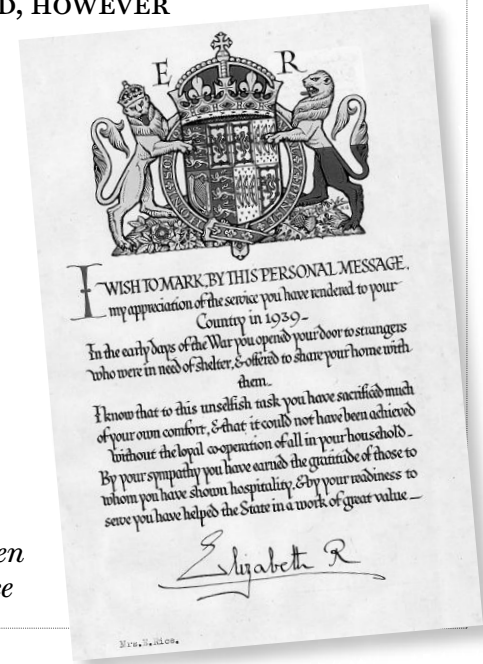 D, HOWEVER
E R
I WISH TO MARK, BY THIS PERSONAL MESSAGE,
my appreciation of the service you have rendered to your
Country in 1939-
In the early days of the War you opened your door to strangers
who were in need of shelter, & offered to share your home with
them-
I know that to this unselfish task you have sacrificed much
of your own comfort, & that it could not have been achieved
without the loyal co-operation of all in your household-
By your sympathy you have earned the gratitude of those to
whom you have shown hospitality, & by your readiness to
serve you have helped the State in a work of great value-
Elizabeth R
en
Mrs.E.Rice.